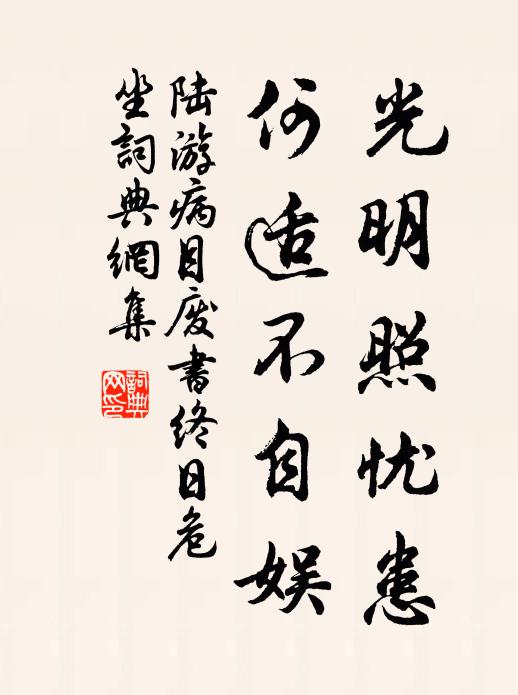 光明照忧患
何适不自娱
陆游病目废书终日危
坐詞典網集
詞典
网印